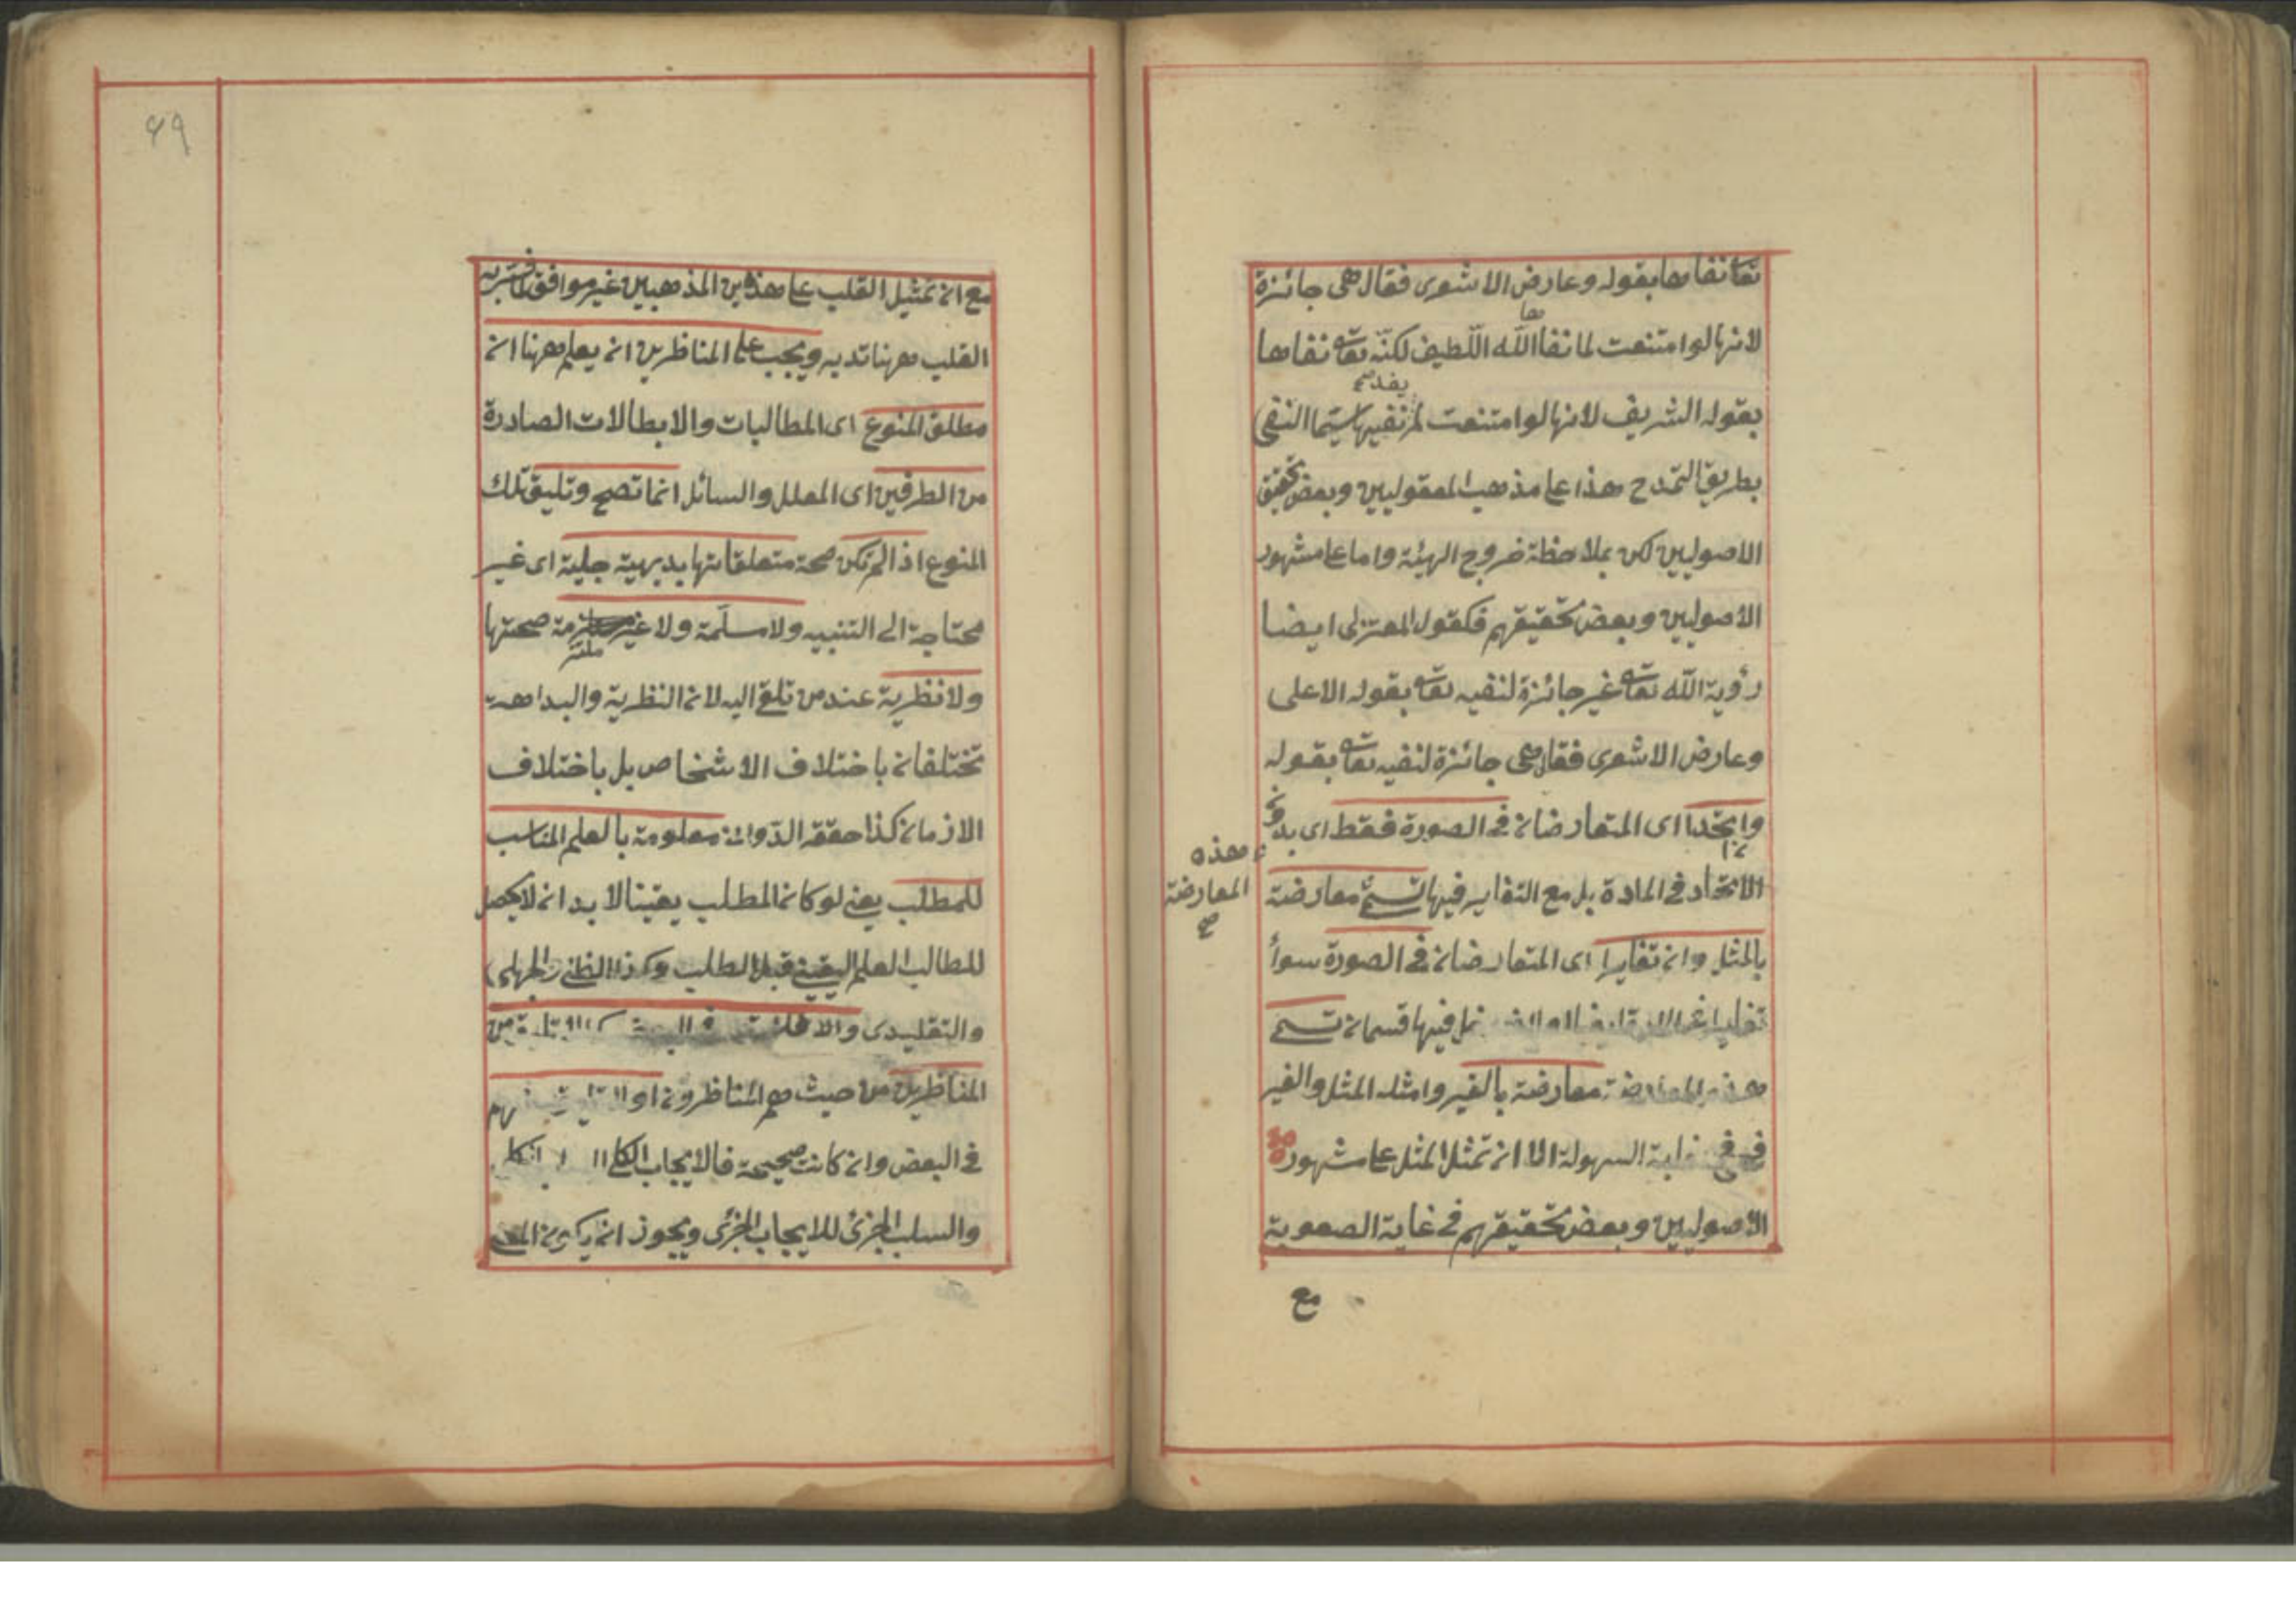 تعا نفاها بقوله وعارض الاشعرى فقال هى جائزة
لانها لو امتنعت لما نفاها الله اللّطيف لكنّه تعا نفاها
بقوله الشريف لانها لو امتنعت لم نفيها سيّما النفى
بطريق التمدح هذا على مذهب المعقوليين وبعض تحقيق
الاصوليين لكن بملاحظة خروج الهيئة واما على مشهور
الاصوليين وبعض تحقيقهم فكقول المعتزلى ايضا
رؤية الله تعا غير جائزة لنفيه تعا بقوله الاعلى
وعارض الاشعرى فقال هى جائزة لنفيه تعا بقوله
وان اتحدا اى المتعارضان فى الصورة فقط اى بدون
الاتحاد فى المادة بل مع التغاير فيها تسمى معارضة
هذه
المعارضة
صح
بالمثل وان تغايرا اى المتعارضان فى الصورة سواء
فيها قسمان تسمى
هذه المعارضة معارضة بالغير وامثلة المثل والغير
فى غاية السهولة الا ان تمثل المثل على مشهور
الاصوليين وبعض تحقيقهم فى غاية الصعوبة
مع
٤٩
مع ان تمثيل القلب على هذاين المذهبين غير موافق
القلب ههنا تدبر ويجب على المناظرين ان يعلم ههنا ان
مطلق المنوع اى المطالبات والابطالات الصادرة
من الطرفين اى المعلل والسائل انما تصح وتليق تلك
المنوع اذا لم تكن صحة متعلقاتها بديهية جلية اى غير
محتاجة الى التنبيه ولا مسلّمة ولا غير ملتزمة صحتها
ولا نظرية عند من تلقى اليه لان النظرية والبداهة
تختلفان باختلاف الاشخاص بل باختلاف
الازمان كذا حققه الدّوانى معلومة بالعلم المناسب
للمطلب يعنى لو كان المطلب يقينا لا بد ان لا يحصل
للمطالب العلم اليقينى قبل الطلب وكذا الظنى والجهلى
والتقليدى والا من
المناظرين من حيث هم مناظرون او
فى البعض وان كانت صحيحة فالايجاب الكلى
والسلب الجزئى للايجاب الجزئى ويجوز ان يكون